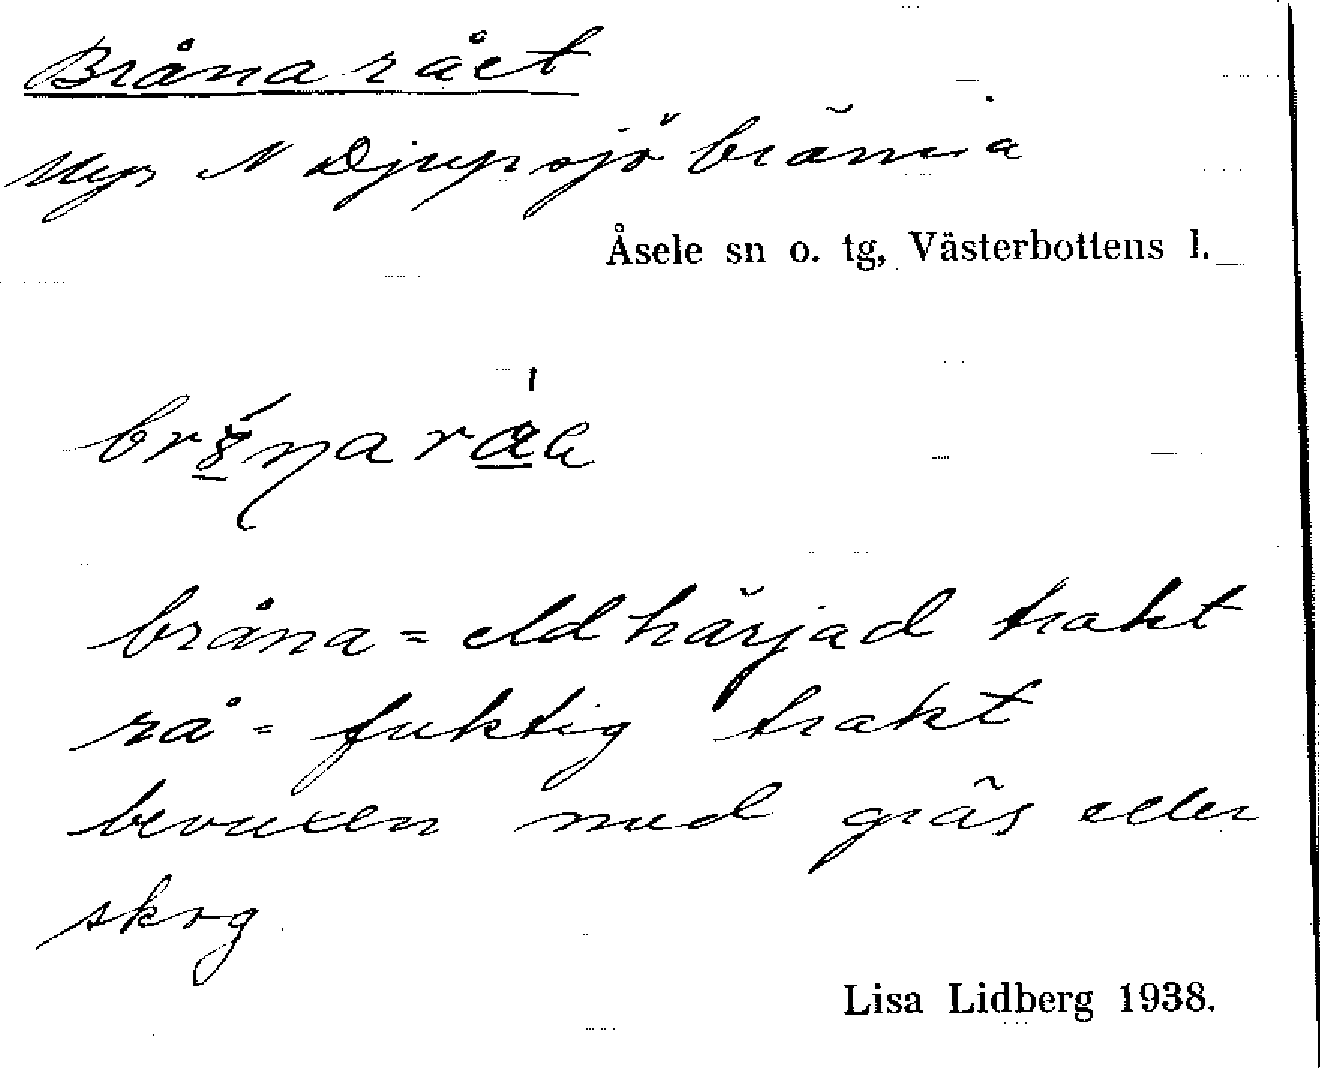 Brånarået
Myr N Djupsjöbränna
Åsele sn o. tg, Västerbottens l.
bråna = eldhärjad trakt
rå = fuktig trakt
bevuxen med gräs eller
skog
Lisa Lidberg 1938.